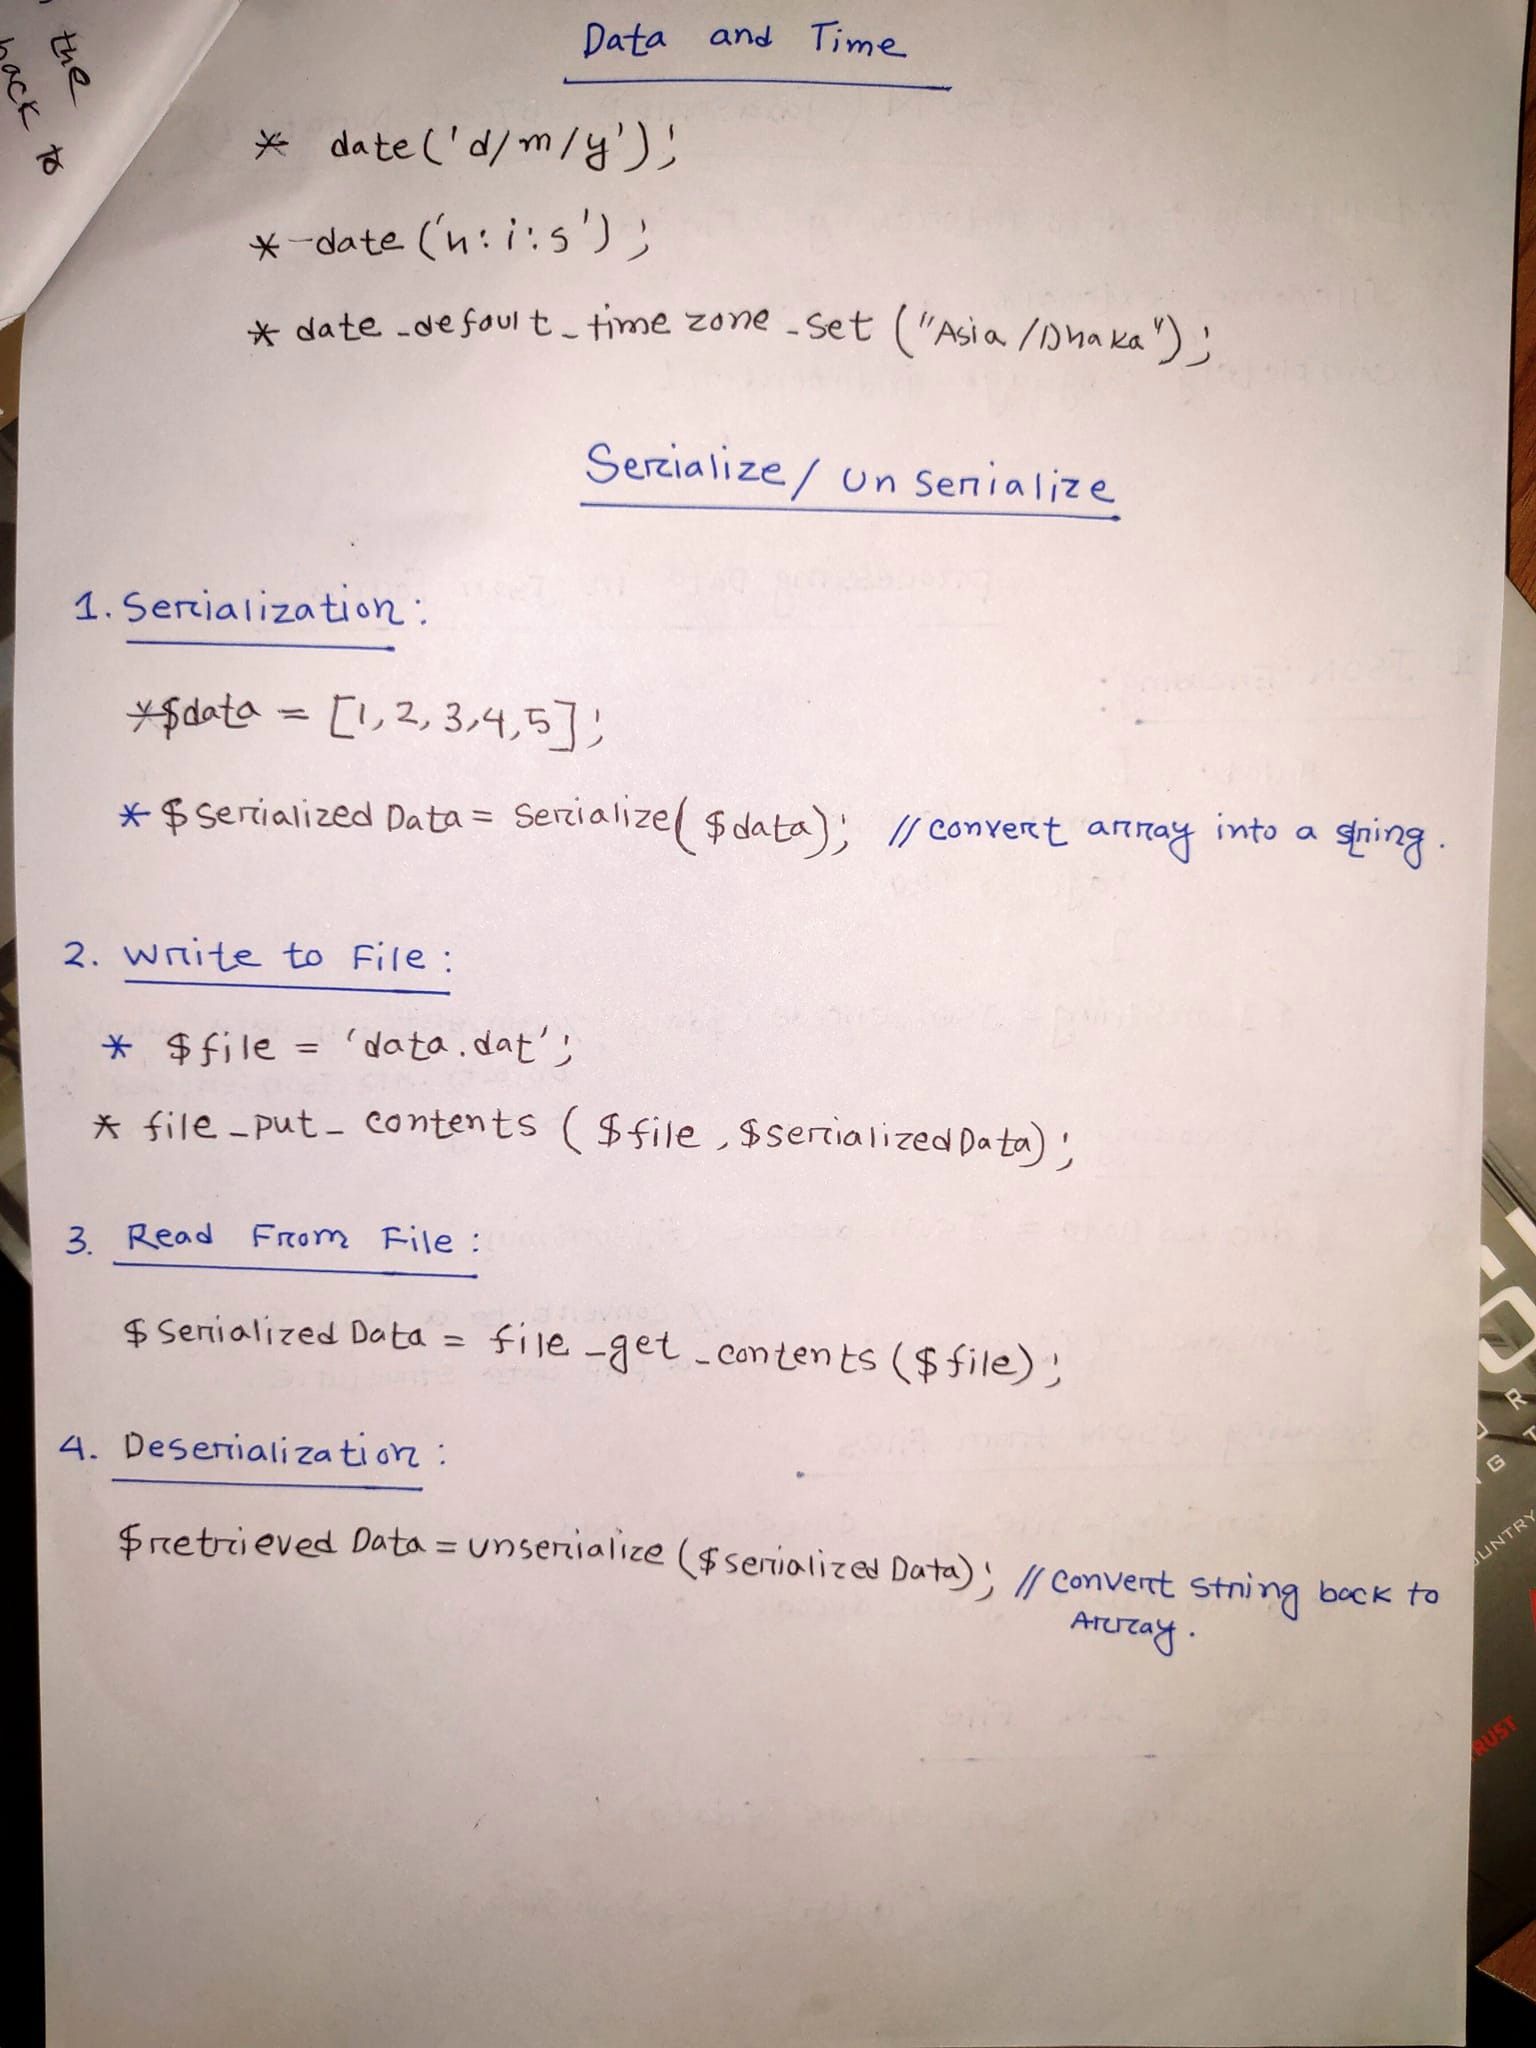 the
back to
Data and Time
* date('d/m/y');
* date('h:i:s');
* date_default_time zone_set ("Asia/Dhaka");
Serialize/ Un serialize
1. Serialization:
*$data = [1,2,3,4,5];
* $serialized Data = Serialize($data); // convert array into a string.
2. Write to File:
* $file = 'data.dat';
* file_put_contents ($file, $serialized Data);
3. Read From File:
$Serialized Data = file_get_contents ($file);
4. Deserialization:
$retrieved Data = unserialize ($serialized Data); // convert string back to
Array.
OUNTRY
RUST